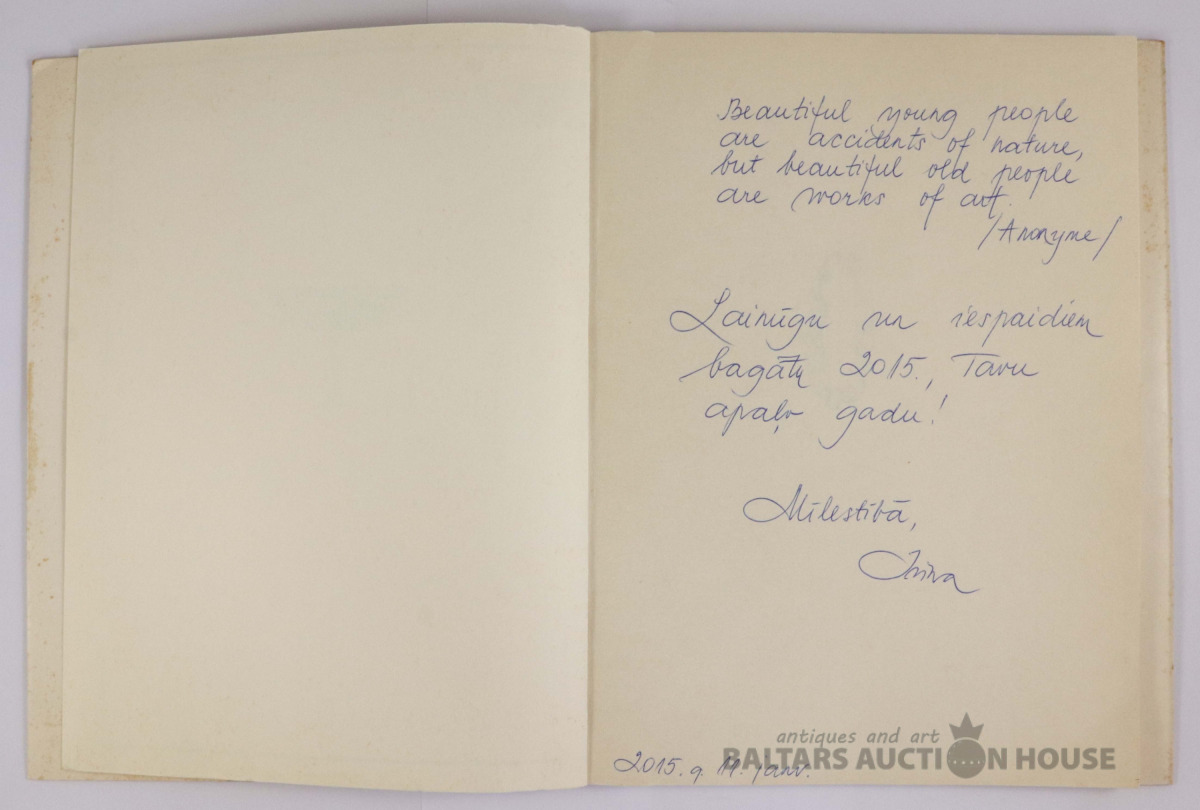 Beautiful young people
are accidents of nature,
but beautiful old people
are works of art.
/Anonyme/
Laimīgu un iespaidiem
bagātu 2015., Tavu
apaļo gadu!
Mīlestībā,
2015. g. 14. janv.
antiques and art
BALTARS AUCTION HOUSE